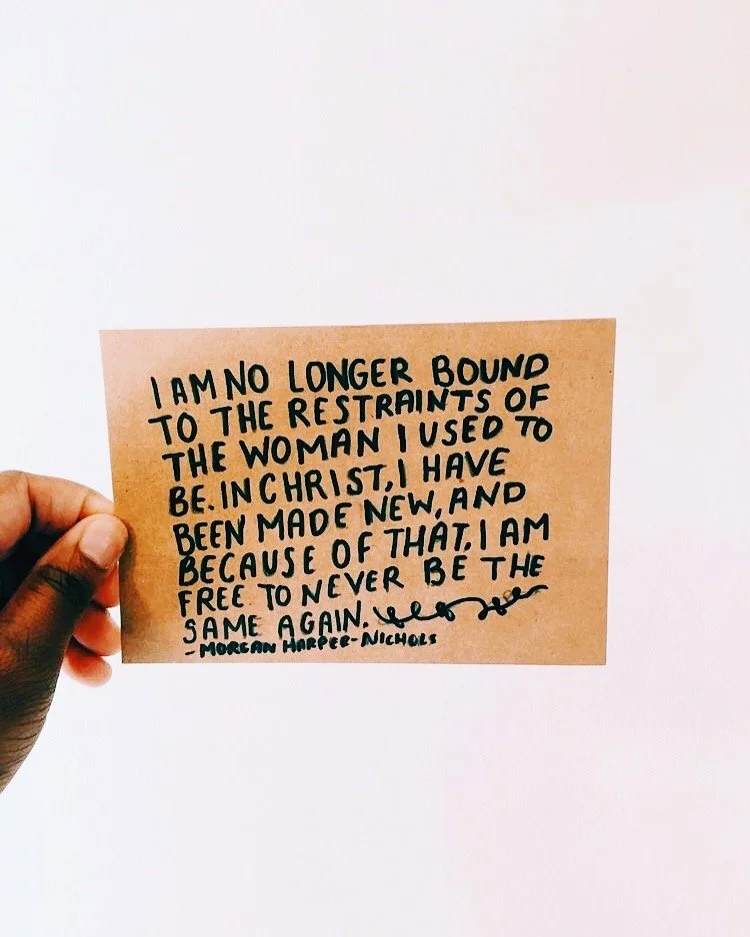 I AM NO LONGER BOUND
TO THE RESTRAINTS OF
THE WOMAN I USED TO
BE. IN CHRIST, I HAVE
BEEN MADE NEW, AND
BECAUSE OF THAT, I AM
FREE TO NEVER BE THE
SAME AGAIN.
- MORGAN HARPER-NICHOLS